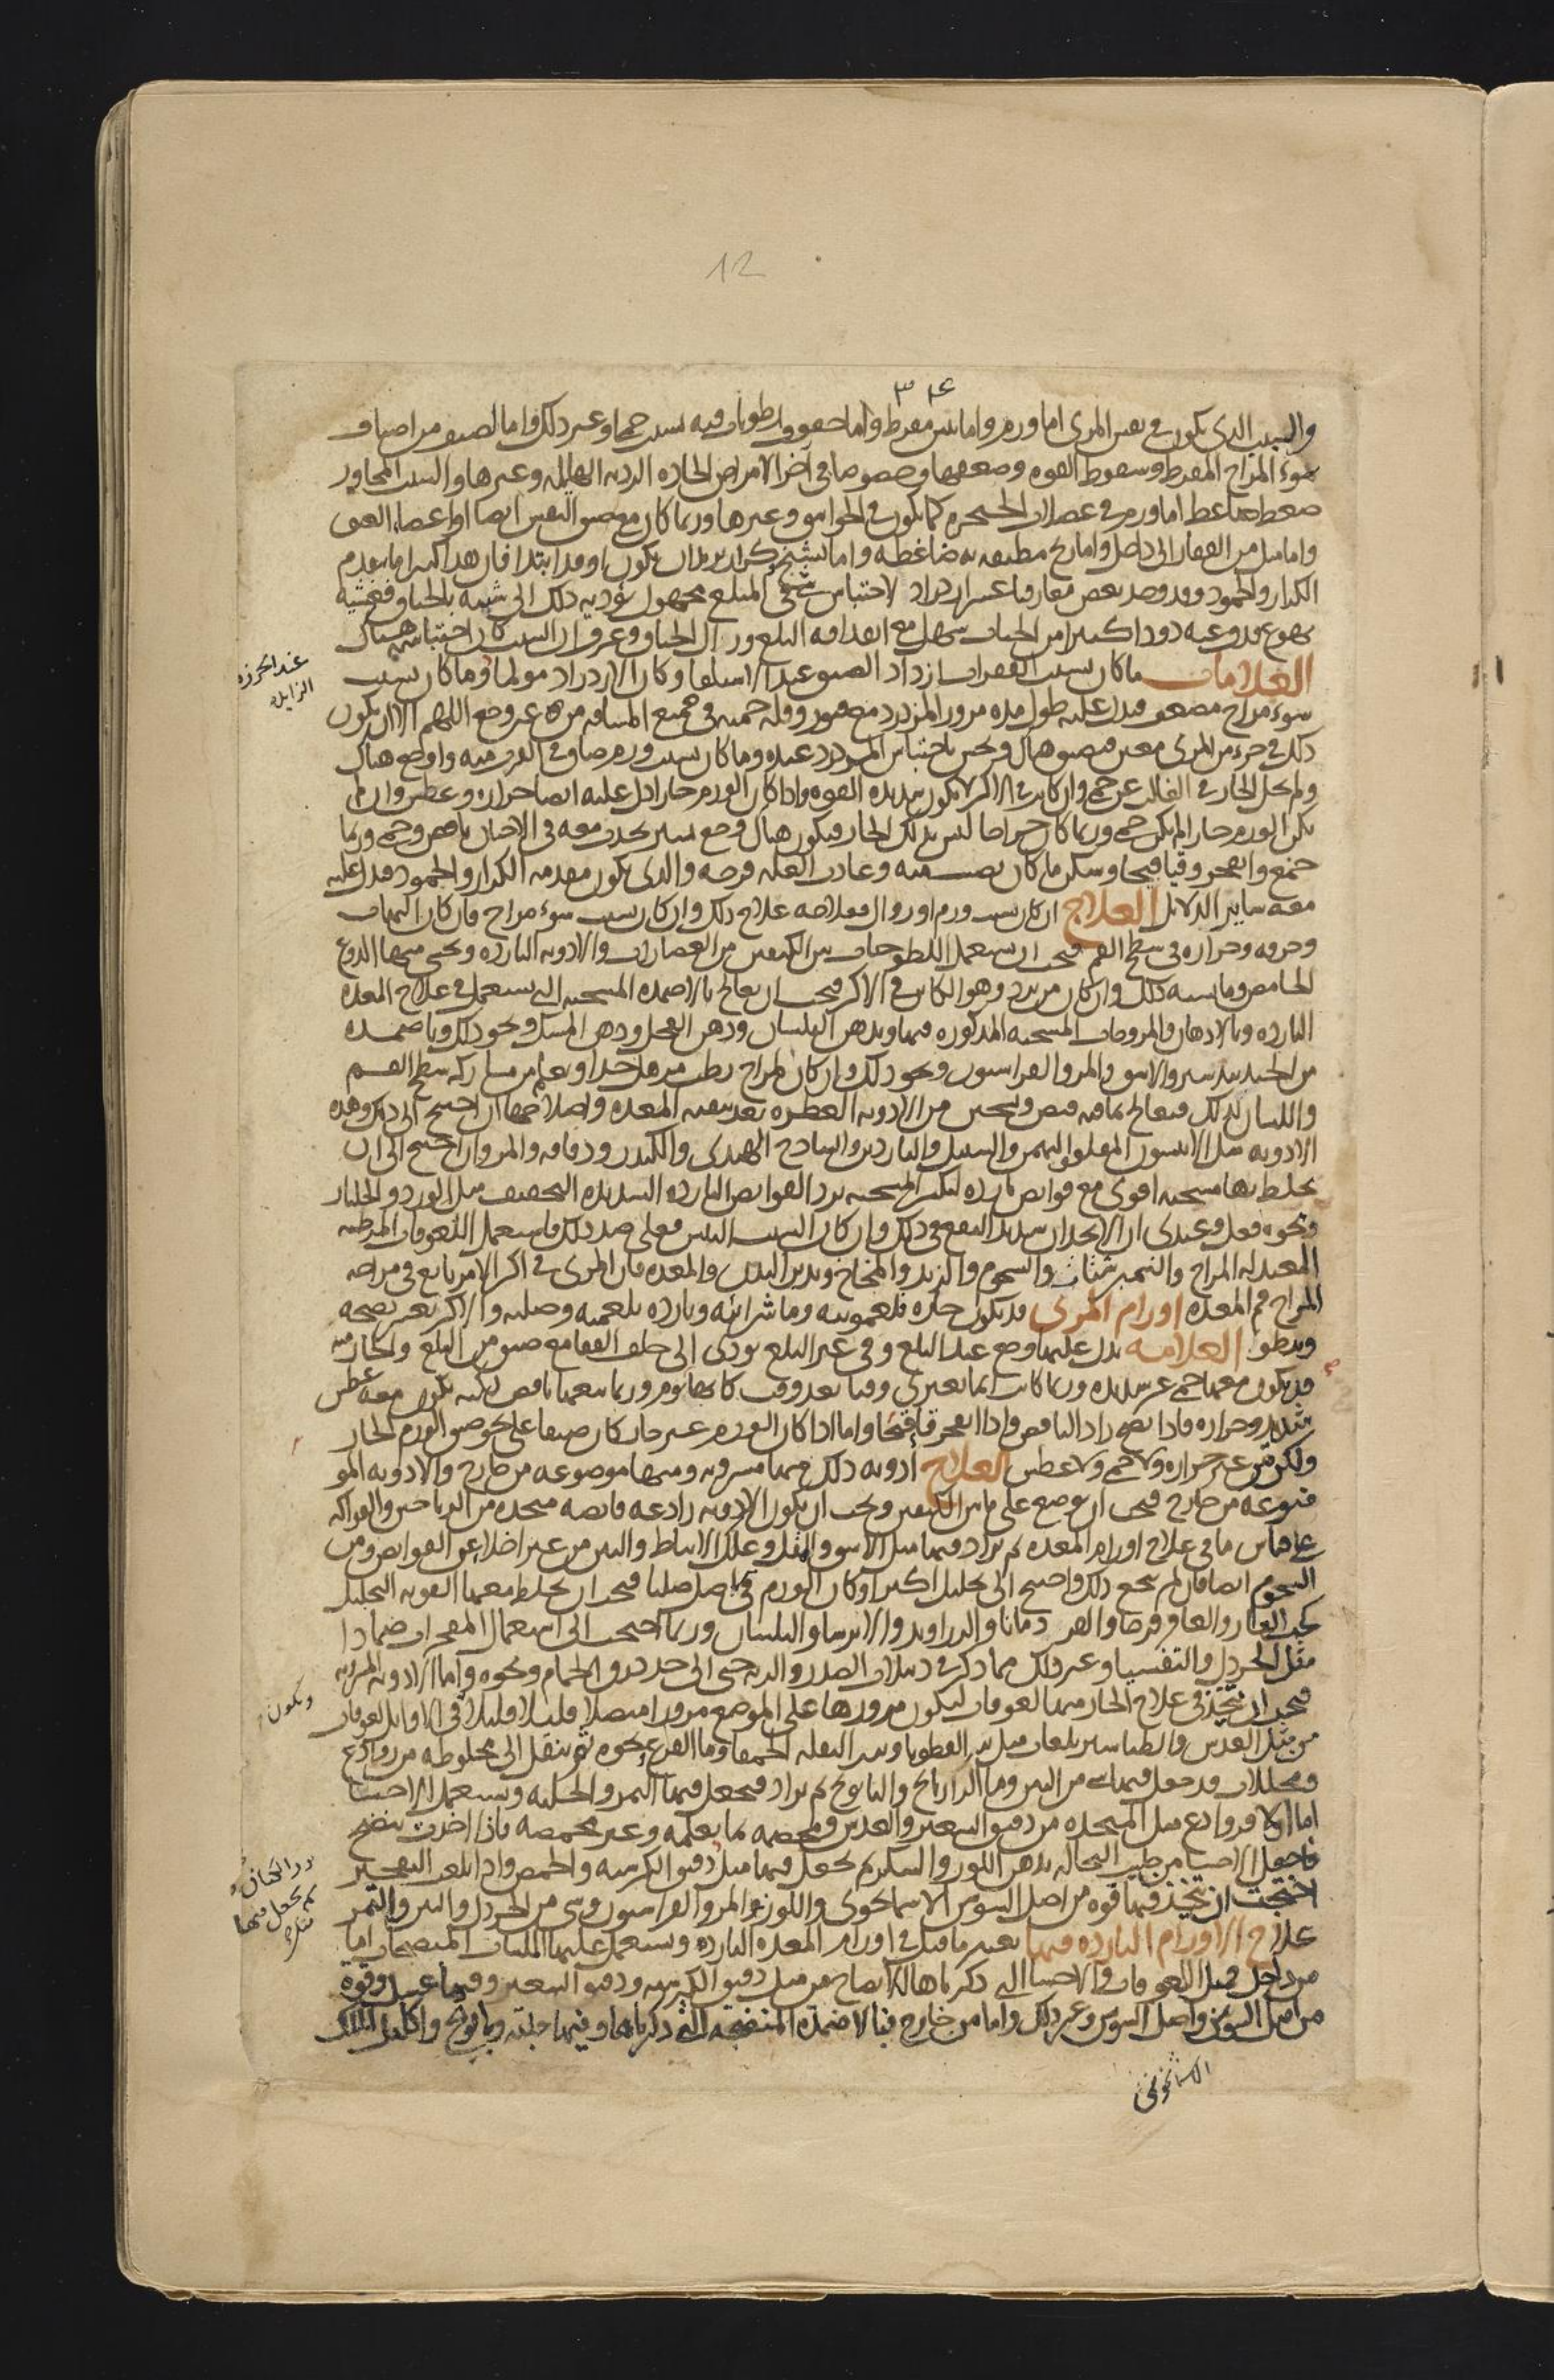 12
والسبب الذى يكون في نفس المرى اما ورم واما يبس مفرط واما جفوف رطوبات فيه بسبب حمى او غير ذلك واما لصنف من اصناف
سوء المزاج المفرط وسقوط القوه وضعفها وخصوصا في آخر الامراض الحاده الرديه الهايله وغيرها والسبب المجاور
ضغط ضاغط اما ورم في عضلات الحنجره كما يكون في الخوانيق وغيرها وربما كان مع ضيق النفس ايضا او اعضاء العنق
واما ميل من الفقار الى داخل واما ريح مطيفه به ضاغطه واما تشنج وكزاز يريد ان يكون او قد ابتدا فان هذا كثيرا ما يتقدم
الكزاز والجمود وقد وجد بعض معارفنا عسر ازدراد لاحتباس شى في المبلع مجهول يؤديه ذلك الى شبيه بالخناق فغشيه
تهوع قذف عنه دودا كثيرا من الحيات سهل مع انقذافه البلع وزال الخناق وعرف ان السبب كان احتباسه هناك
العلامات ما كان بسبب الفقرات ازداد الضيق عند الاستلقا وكان الازدراد مولما وما كان بسبب
عند الخرزه
الزايله
سوء مزاج مضعف فيدل عليه طول مده مرور المزدرد مع فتور وقله حميه في جميع المسافه من غير وجع اللهم الا ان يكون
ذلك في جزء من المرى معين فيضيق هناك ويحس باحتباس المزدرد عنده وما كان بسبب ورم ضاق في الجزء منه واوجع هناك
ولم يخل الحار في الغالب عن حمى وان كانت في الاكثر لا تكون شديده القوه واذا كان الورم حارا دل عليه ايضا حراره وعطش وان لم
يكن الورم حارا لم يكن حمى وربما كان خراجا ليس بذلك الحار فيكون هناك وجع يسير يحدث معه في الاحيان نافض وحمى وربما
جمع وانفجر وقيا قيحا وسكن ما كان يصيبه وعادت العله قرحه والذى يكون مقدمه الكزاز والجمود فيدل عليه
معه ساير الدلايل العلاج ان كان بسبب ورم او زوال فعلاجه علاج ذلك وان كان بسبب سوء مزاج فان كان التهاب
وحرقه وحراره في سطح الفم فيجب ان يستعمل اللطوخات بين الكتفين من العصارات والادويه البارده ويحسى منها الدوغ
الحامض وما يشبه ذلك وان كان من برد وهو الكاين في الاكثر فيجب ان يعالج بالاضمده المسخنه التى تستعمل في علاج المعده
البارده وبالادهان والمروخات المسخنه المذكوره فيها وبدهن البلسان ودهن الفجل ودهن المسك ونحو ذلك وباضمده
من الجندبيدستر والاشق والمر والفراسيون ونحو ذلك وان كان المزاج رطب مرهل جدا ويعلم من مشاركه سطح الفم
واللسان لذلك فيعالج بما فيه قبض وتسخين من الادويه العطره بعد تنقيه المعده واصلاحها ان احتيج الى ذلك وهذه
الادويه مثل الانيسون المقلو والبهمن والسنبل والناردين والساذج الهندى والكندر ودقاقه والمر وان احتيج الى ان
يخلط بها مسخنه اقوى مع قوابض بارده لتكسر المسخنه برد القوابض البارده الشديده التجفيف مثل الورد والجلنار
ونحوه فعل وعندى ان الانجدان شديد النفع في ذلك وان كان السبب اليبس فعلى ضد ذلك فاستعمل اللعوقات المرطبه
المعتدله المزاج والنيمبرشتات والشحوم والزبد والمخاخ وتدبير البدن والمعده فان المرى في اكثر الامر تابع في مزاجه
لمزاج فم المعده اورام المرى قد تكون حاره فلغمونيه وماشرائيه وبارده بلغميه وصلبه والاكثر يعسر نضجه
ويبطؤ العلامه يدل عليها وجع عند البلع وفي غير البلع يودى الى خلف القفا مع ضيق من البلع والحار منه
قد يكون معها حمى غير شديده وربما كانت انما تعترى وقتا بعد وقت كانها يوم وربما تبعها نافض لكنه يكون معه عطش
شديد وحراره فاذا نضج زاد النافض واذا انفجر قا قيحا واما اذا كان الورم غير حار كان ضيقا على نحو ضيق الورم الحار
ولكن من غير حراره ولا حمى ولا عطش العلاج ادويه ذلك منها مشروبه ومنها موضوعه من خارج والادويه المو
ضوعه من خارج فيجب ان توضع على ما بين الكتفين ويجب ان تكون الادويه رادعه قابضه متخذه من الرياحين والفواكه
على قياس ما في علاج اورام المعده ثم يزاد فيها مثل الاشق والمقل وعلك الانباط والتين من غير اخلاء عن القوابض ومن
الشحوم ايضا فان لم ينجع ذلك واحتيج الى تحليل اكثر او كان الورم في الاصل صلبا فيجب ان يخلط معها القويه التحليل
كحب الغار والعاقر قرحا والقردمانا والزراوند والايرسا والبلسان وربما احتجت الى استعمال المفجرات ضمادا
مثل الخردل والتفسيا وغير ذلك مما ذكر في دبيلات الصدر والريه حتى الى حد ذرق الحمام ونحوه واما الادويه المشروبه
فيجب ان تتخذ في علاج الحار منها لعوقات ليكون مرورها على الموضع مرورا متصلا قليلا قليلا في الاوايل لعوقات
وتكون
من مثل العدس والطباشير بلعاب مثل بزر القطونا وبزر البقله الحمقا وما القرع ونحوه ثم ينتقل الى مخلوطه من روادع
ومحللات قد جعل فيها شى من التين وما الرازيانج والبابونج ثم يزاد فيجعل فيها التمر والحلبه ويستعمل الاحسا
اما اولا فروادع مثل المتخذه من دقيق الشعير والعدس ومحمضه بما تعلمه وغير محمضه فاذا اخذت تنضج
فاجعل الاحسا من طبيخ النخاله بدهن اللوز والسكر ثم يجعل فيها مثل دقيق الكرسنه والحمص واذا بلغ التفجير
وبزر الكتان
ثم يجعل فيها
احتجت ان تتخذ فيها قوه من اصل السوسن الاسمانجونى واللوز المر والفراسيون وشى من الخردل والتين والتمر
علاج الاورام البارده فيها يعتبر ما قيل في اورام المعده البارده ويستعمل عليها الملينات المنضجات اما
من داخل فمثل اللعوقات والاحسا التى ذكرناها للانضاج من مثل دقيق الكرسنه ودقيق الشعير وفيها عسل وقوه
من اصل السوسن واصل السوس وغير ذلك واما من خارج فبالاضمده المنضجه التى ذكرناها وفيها حلبه وبابونج واكليل الملك